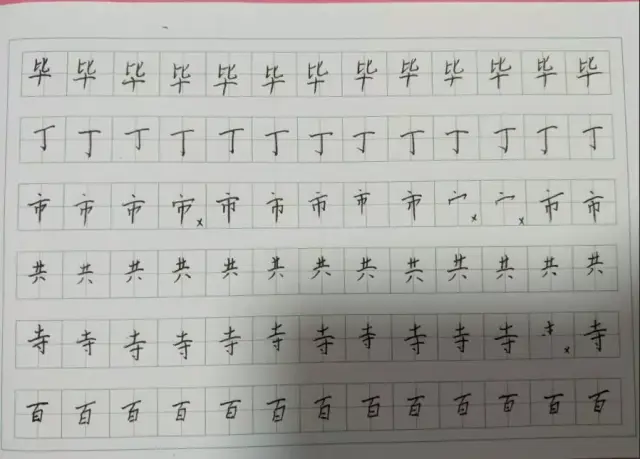 毕毕毕毕毕毕毕毕毕毕毕毕毕
丁丁丁丁丁丁丁丁丁丁丁丁丁
市市市市×市市市市市××市市
共共共共共共共共共共共共共
寺寺寺寺寺寺寺寺寺寺寺×寺
百百百百百百百百百百百百百